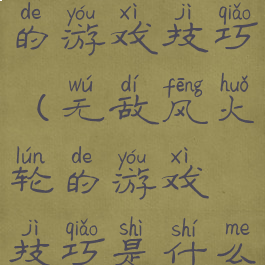 de yóu xì jì qiǎo
的游戏技巧
wú dí fēng huǒ
（无敌风火
lún de yóu xì
轮的游戏
jì qiǎo shì shí me
技巧是什么